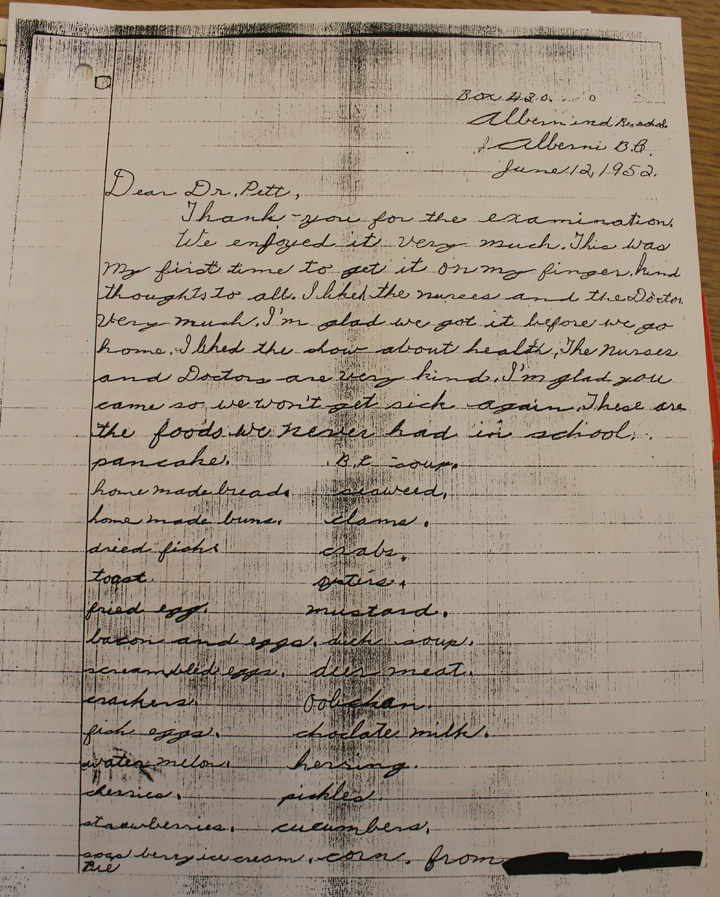 Box 420.
Alberni Ind Res school
Alberni B.C.
June 12, 1952.
Dear Dr. Pett,
Thank-you for the examination.
We enjoyed it very much. This was
my first time to get it on my finger. Kind
thoughts to all. I liked the nurses and the Doctor
very much. I'm glad we got it before we go
home. I liked the show about health. The Nurses
and Doctors are very kind. I'm glad you
came so we won't get sick again. These are
the foods we never had in school.
pancake. soup.
home made bread. seaweed.
home made buns. clams.
dried fish. crabs.
toast. oysters.
fried egg. mustard.
bacon and eggs. duck soup.
screambled eggs. deer meat.
crackers. Oolichan.
fish eggs. choclate milk.
water melon. herring.
cherries. pickles.
strawberries. cucumbers.
soap berry ice cream. corn. from
Pie